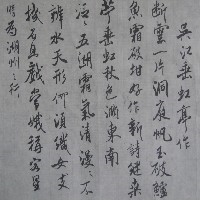 吳江垂虹亭作
斷雲一片洞庭帆玉破鱸
魚霜破柑好作新詩繼桑
苧垂虹秋色滿東南
泛〻五湖霜氣清漫〻不
辨水天形何須織女支
機石且戲常娥稱客星
時為湖州之行